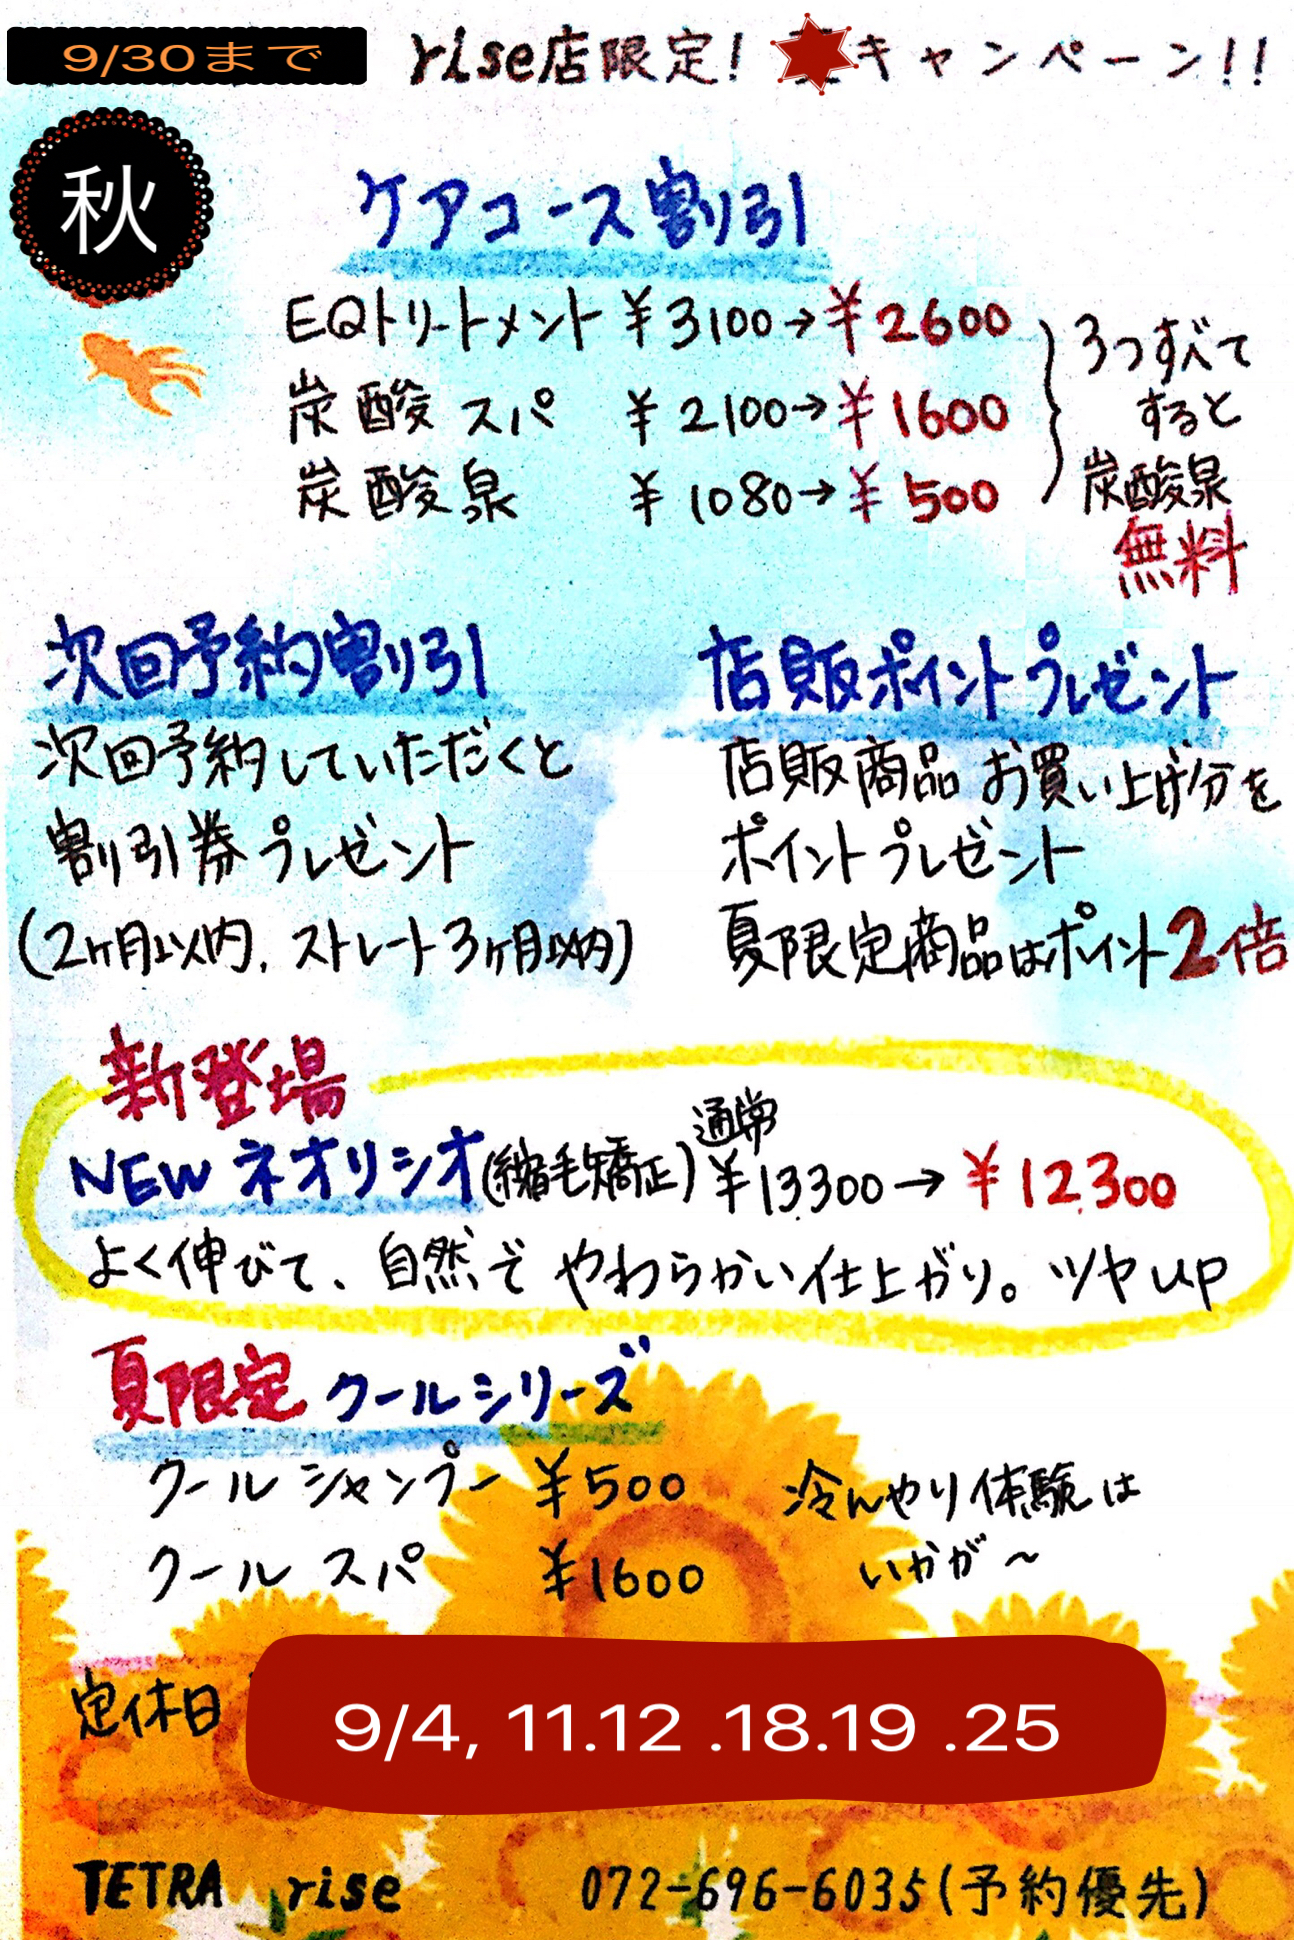 9/30まで
rise店限定! キャンペーン!!
秋
ケアコース割引
EQトリートメント ¥3100→¥2600
炭酸スパ ¥2100→¥1600
炭酸泉 ¥1080→¥500
3つすべて
すると
炭酸泉
無料
次回予約割引
次回予約していただくと
割引券プレゼント
(2ヶ月以内、ストレート3ヶ月以内)
店販ポイントプレゼント
店販商品お買い上げ分を
ポイントプレゼント
夏限定商品はポイント2倍
新登場
NEWネオリシオ(縮毛矯正)通常¥13,300→¥12,300
よく伸びて、自然でやわらかい仕上がり。ツヤup
夏限定クールシリーズ
クールシャンプー ¥500
クールスパ ¥1600
冷んやり体験は
いかが〜
定休日 9/4, 11.12 .18.19 .25
TETRA rise 072-696-6035(予約優先)